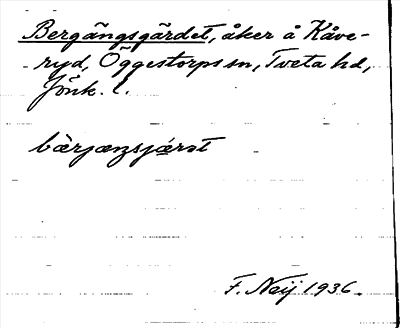 Bergängsgärdet, åker å Kåve-
ryd, Öggestorps sn, Tveta hd,
Jönk. l.
bærjæŋsjæret
F. Neij 1936.